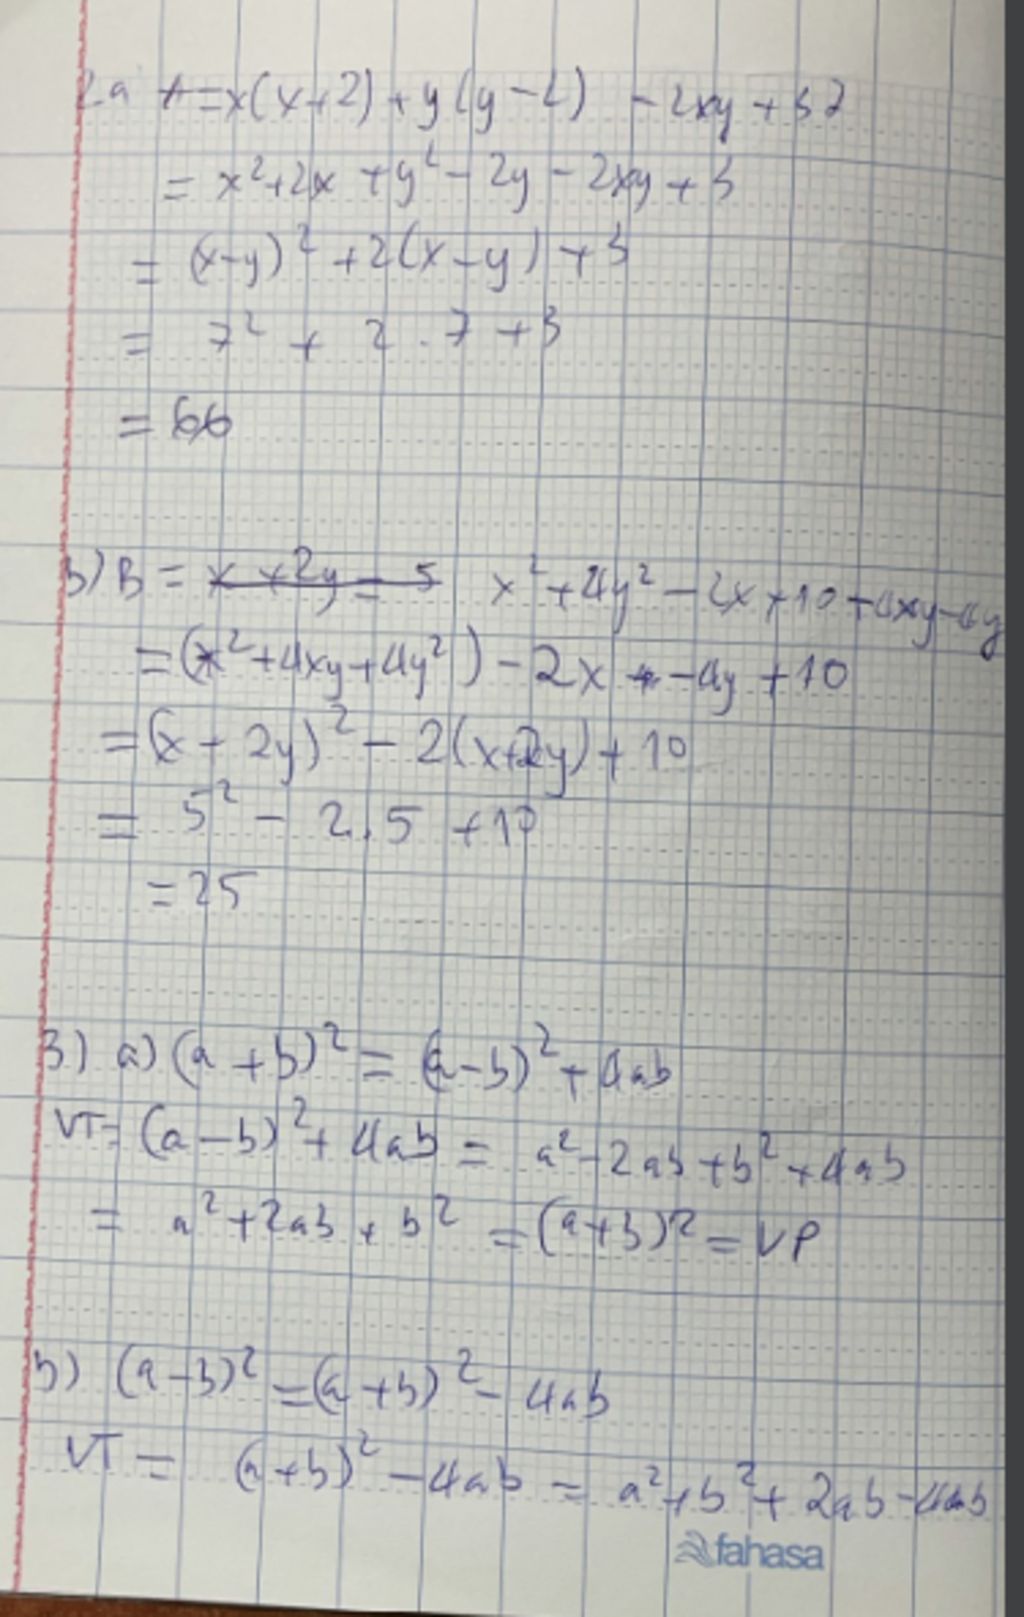 2a A = x(x+2) + y(y-2) - 2xy + 37
= x² + 2x + y² - 2y - 2xy + 3
= (x-y)² + 2(x-y) + 3
= 7² + 2 . 7 + 3
= 66
b) B = x + 2y = 5 x² + 4y² - 2x + 10 + 4xy - 4y
= (x² + 4xy + 4y²) - 2x - 4y + 10
= (x + 2y)² - 2(x+2y) + 10
= 5² - 2.5 + 10
= 25
3) a) (a + b)² = (a-b)² + 4ab
VT = (a-b)² + 4ab = a² - 2ab + b² + 4ab
= a² + 2ab + b² = (a+b)² = VP
b) (a-b)² = (a+b)² - 4ab
VT = (a+b)² - 4ab = a² + b² + 2ab - 4ab
fahasa